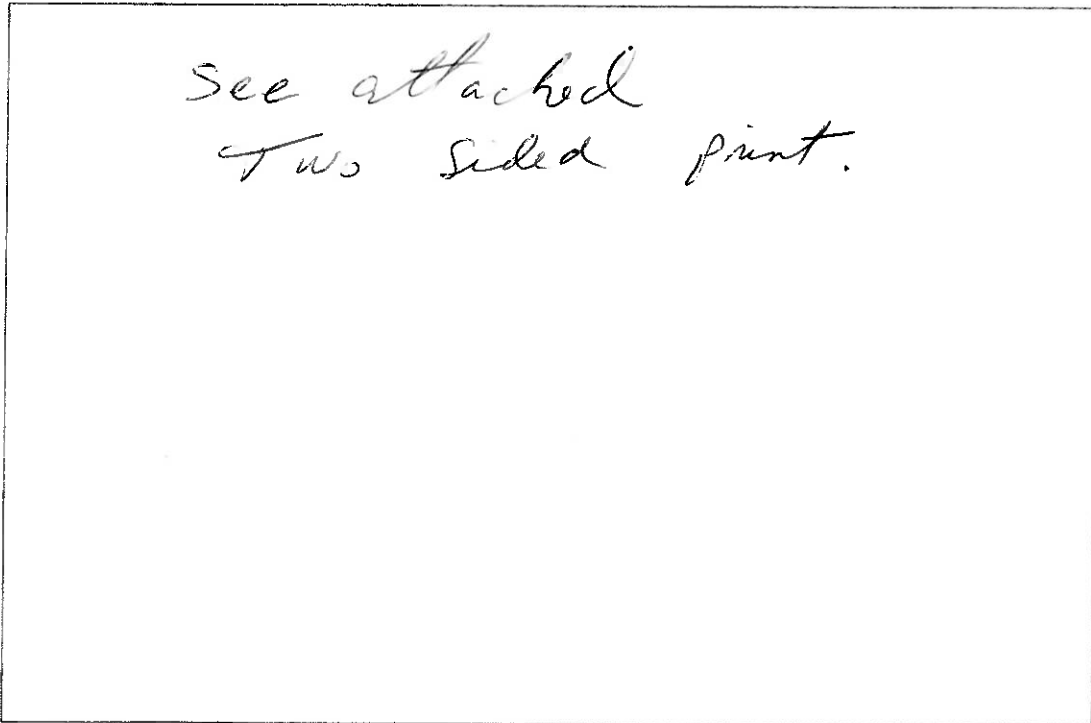 See attached
Two Sided print.